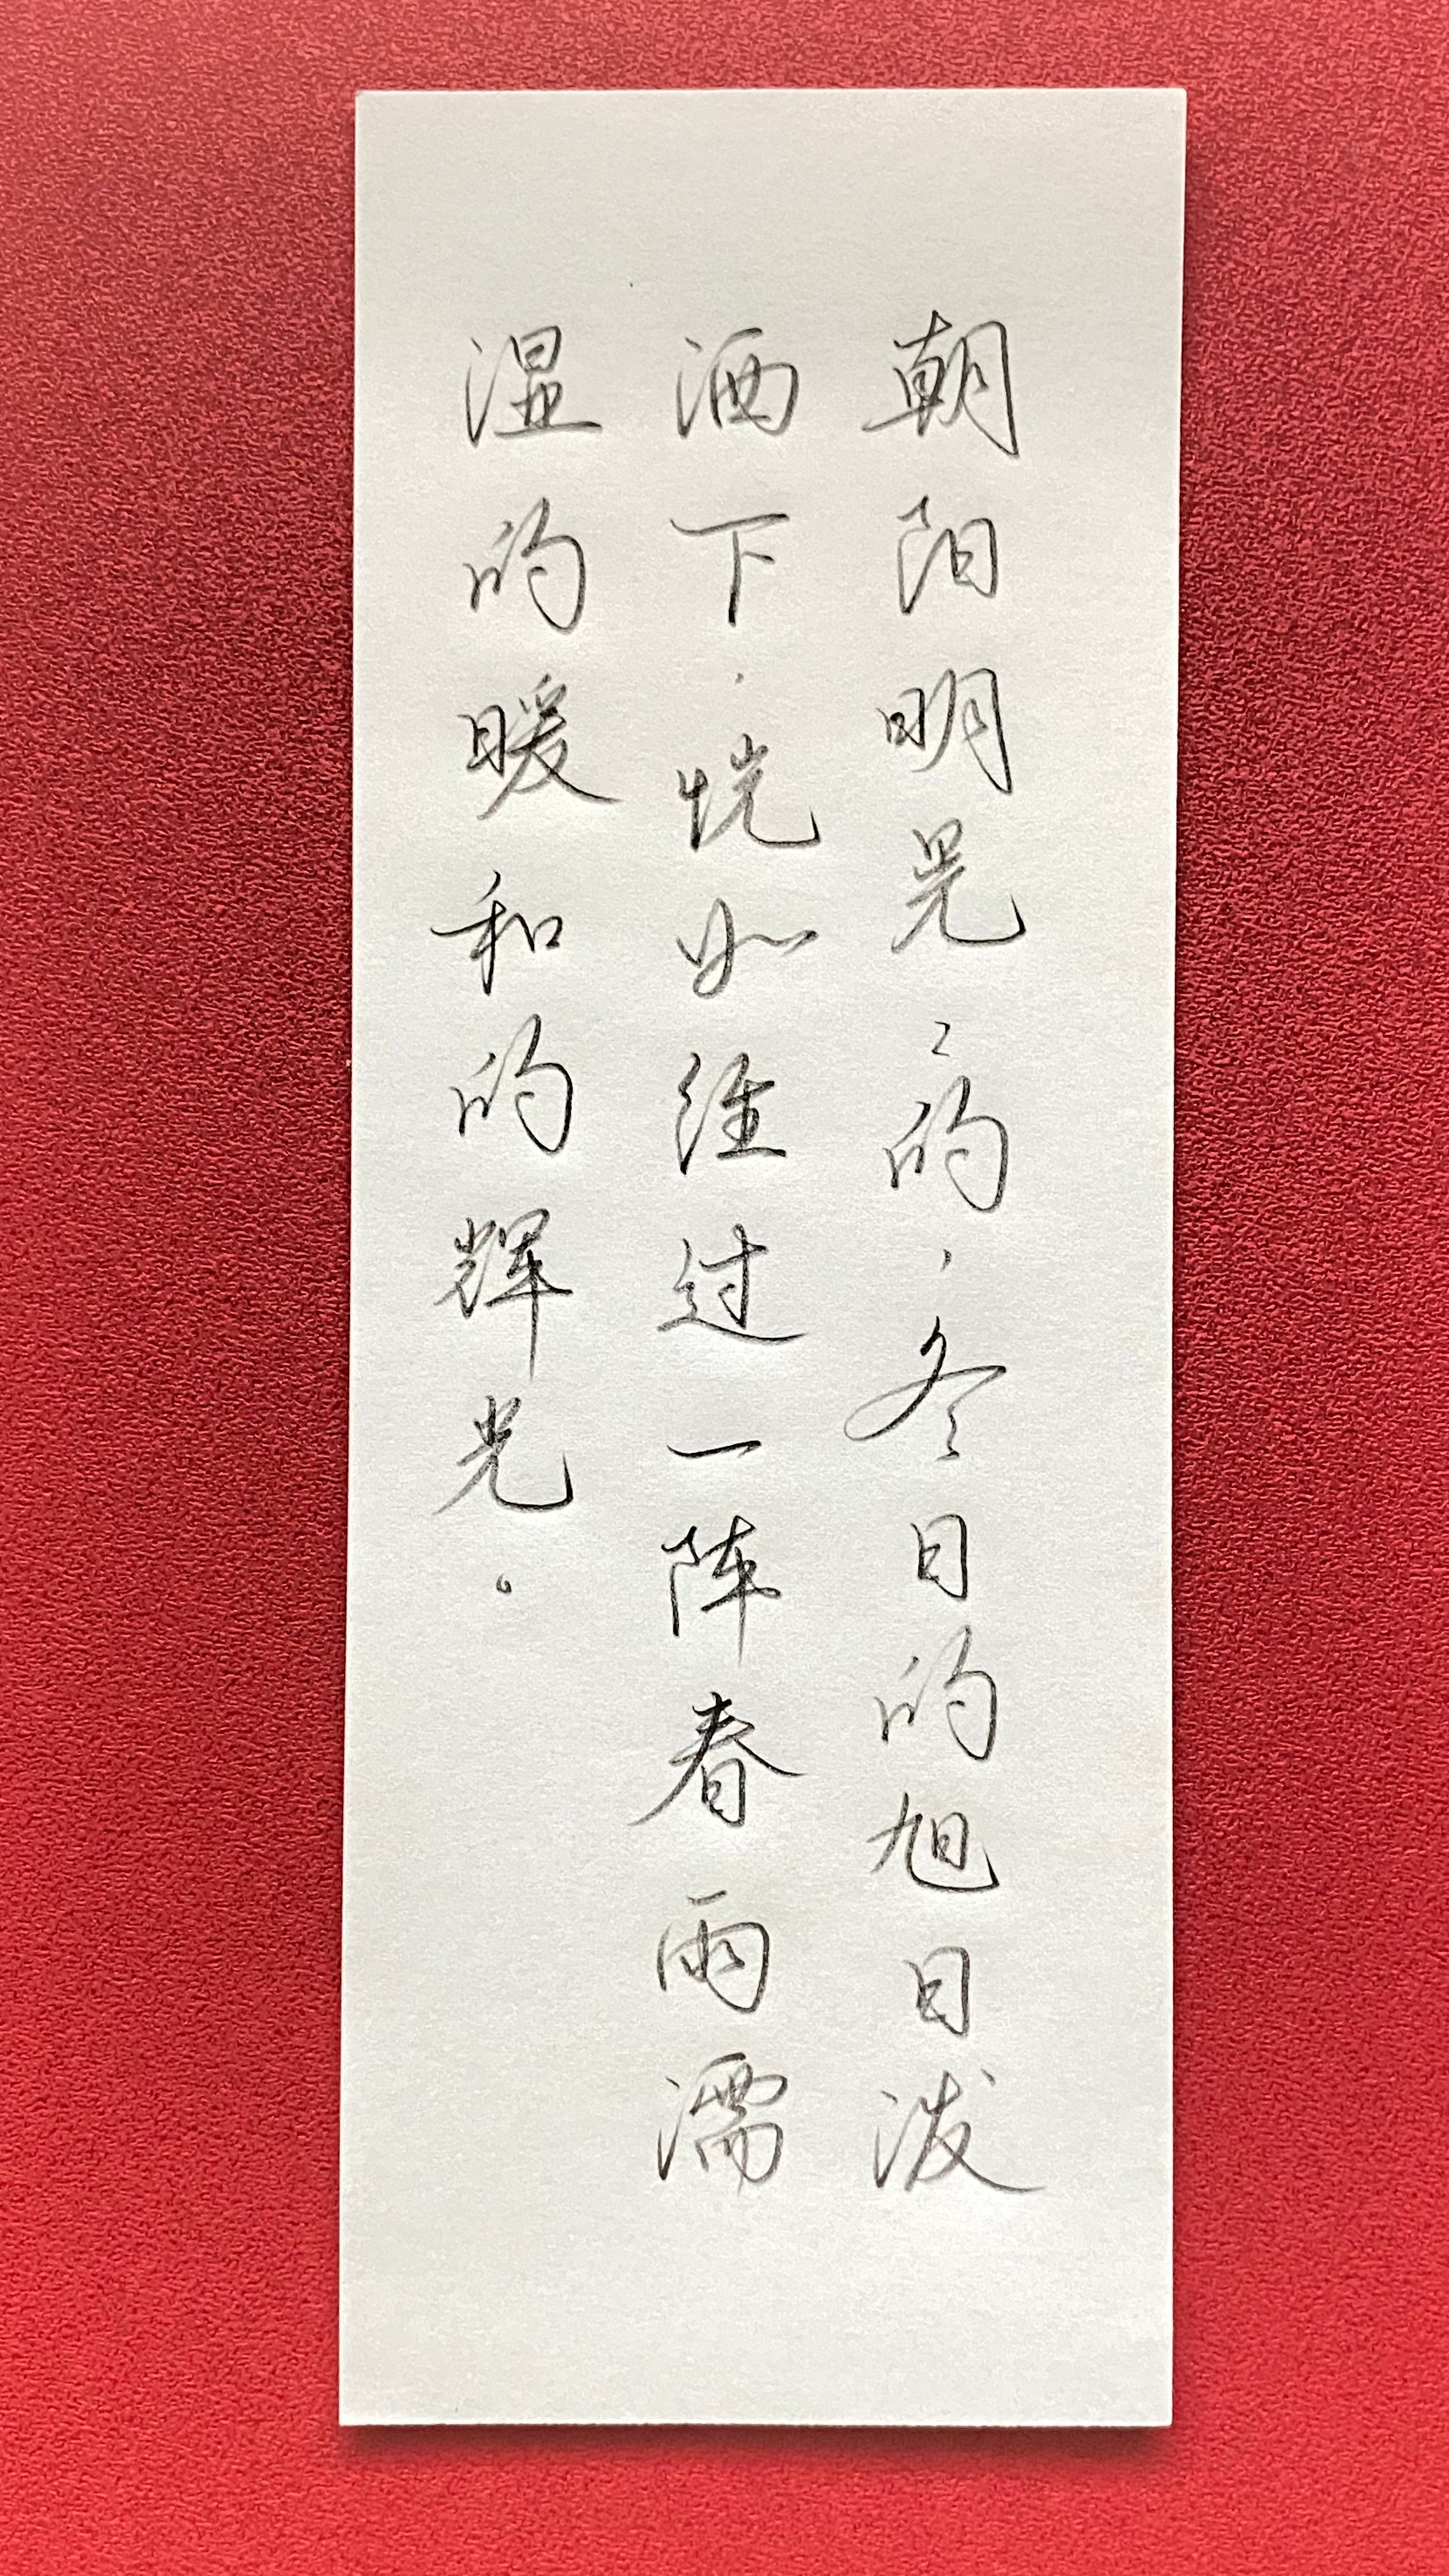 朝阳明晃々的，冬日的旭日泼
洒下，恍如经过一阵春雨濡
湿的暖和的辉光。